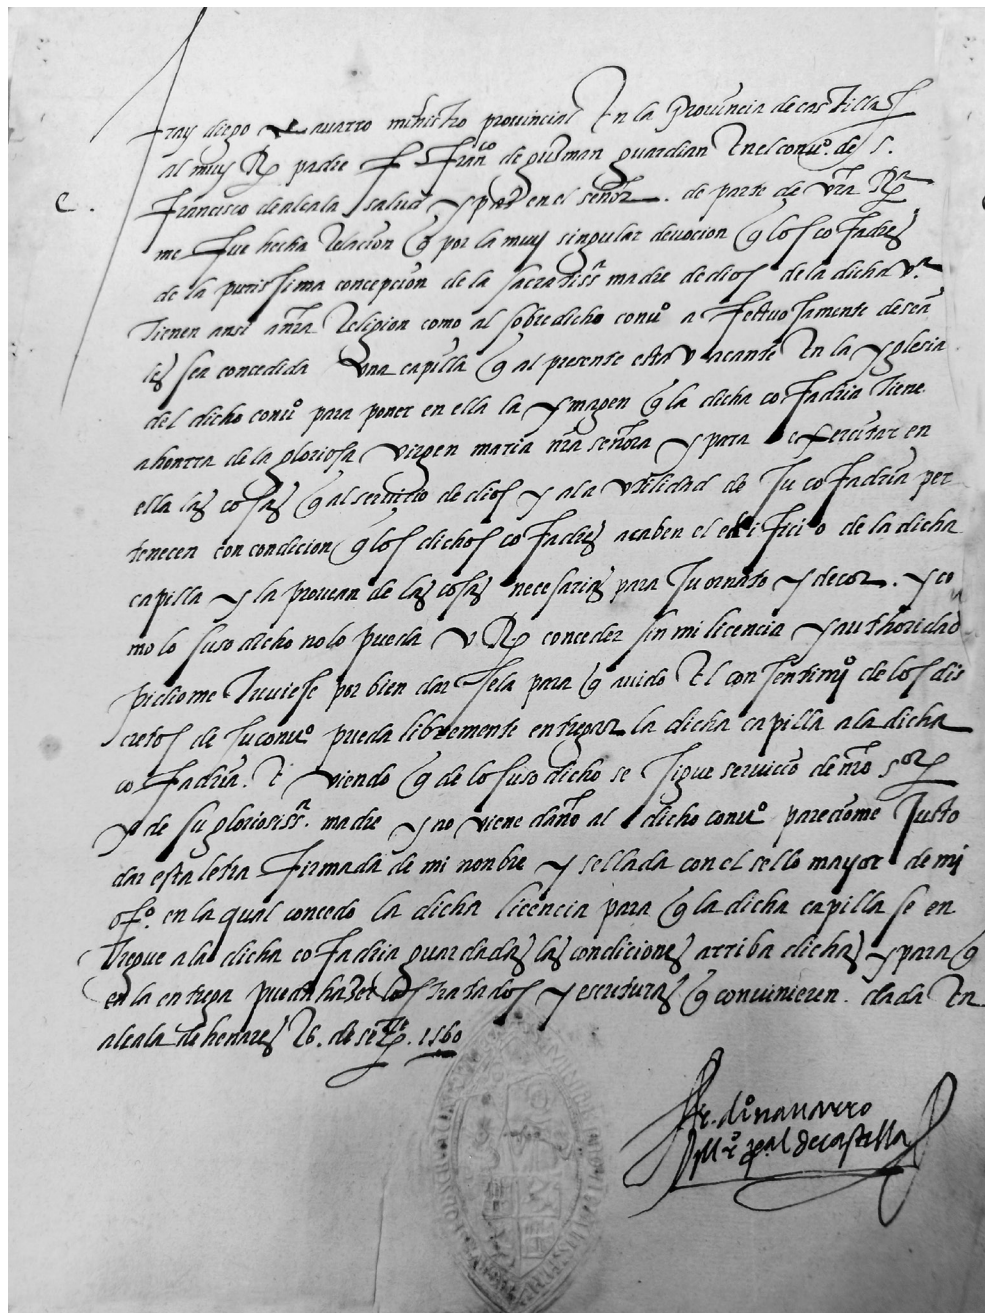 fray diego navarro ministro provincial En la Provincia de castilla &
al muy R^do padre f. fran^co de guzman guardian En el conv^o. de s.
francisco de alcala salud y paz en el señor. de parte de vra R^a
me fue hecha Relacion q por la muy singular devocion q los cofadres
de la purissima concepcion de la sacratiss^a madre de dios de la dicha v^a
tienen ansi a nra Religion como al sobredicho conv^o affectuosamente desean
les sea concedida una capilla q al presente esta vacante En la yglesia
del dicho conv^o para poner en ella la ymagen q la dicha cofadria tiene
a honrra de la gloriosa virgen maria nra señora y para exercitar en
ella las cosas q al servitio de dios y a la utilidad de su cofadria per
tenecen con condicion q los dichos cofadres acaben el edificio de la dicha
capilla y la provean de las cosas necesarias para su ornato y decor. y co
mo lo suso dicho no lo pueda v R^a conceder sin mi licencia y authoridad
pidiome tuviese por bien dar sela para q avido El consentimi^o de los dis
cretos de su conv^o pueda libremente entregar la dicha capilla a la dicha
cofadria. E viendo q de lo suso dicho se sigue servicio de nro s^or
y de su gloriosiss^a. madre y no viene daño al dicho conv^o pareciome Justo
dar esta letra firmada de mi nonbre y sellada con el sello mayor de mi
off^o. en la qual concedo la dicha licencia para q la dicha capilla se en
tregue a la dicha cofadria guardadas las condiciones arriba dichas y para q
en la entrega puedan hazer los tratados y escrituras q convinieren. dada En
alcala de henares 26. de set^e. 1560
fr. di^o navarro
m^o p^al de castilla